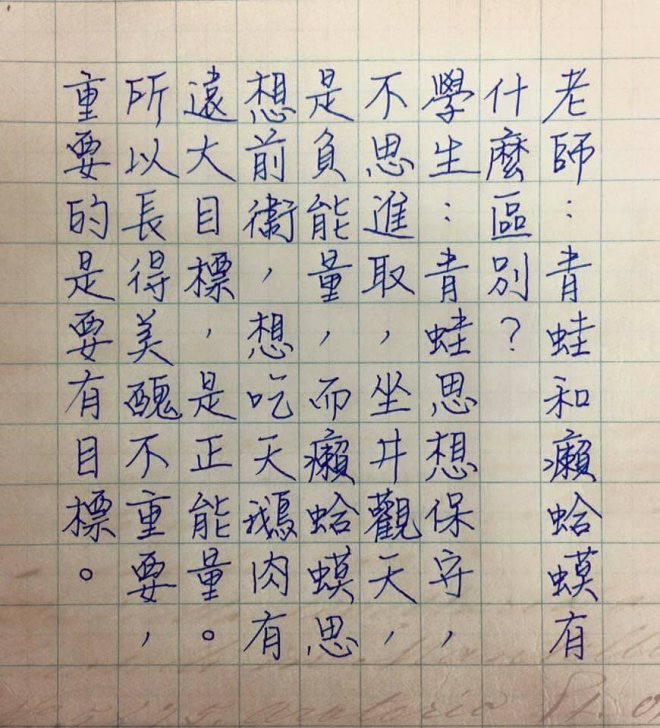 老師：青蛙和癩蛤蟆有
什麼區別？
學生：青蛙思想保守，
不思進取，坐井觀天，
是負能量，而癩蛤蟆思
想前衛，想吃天鵝肉有
遠大目標，是正能量。
所以長得美醜不重要，
重要的是要有目標。